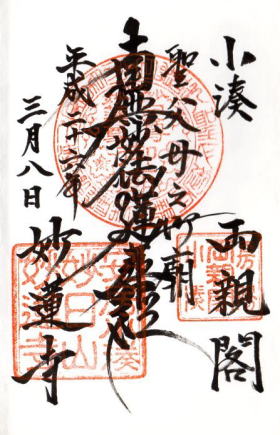 小湊
両親閣
聖父母之御廟
南無妙法蓮華経
平成二十六年
三月八日
妙蓮寺